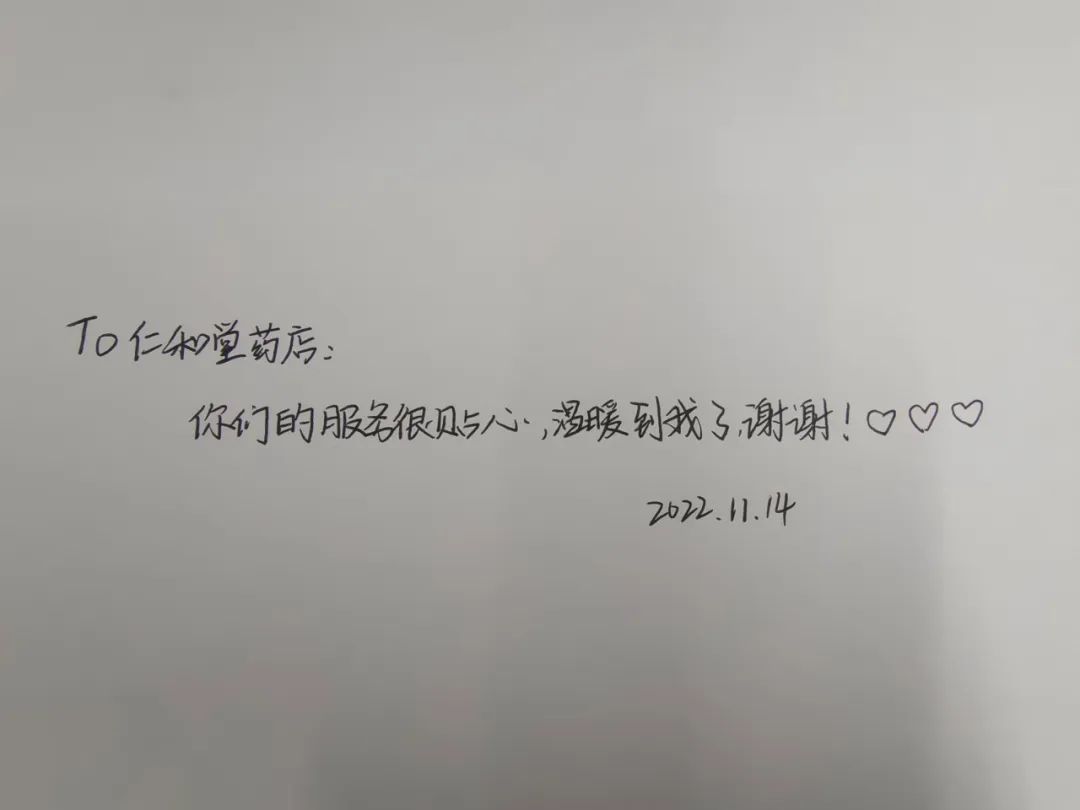 To 仁和堂药店：
你们的服务很贴心，温暖到我了，谢谢！♡♡♡
2022.11.14